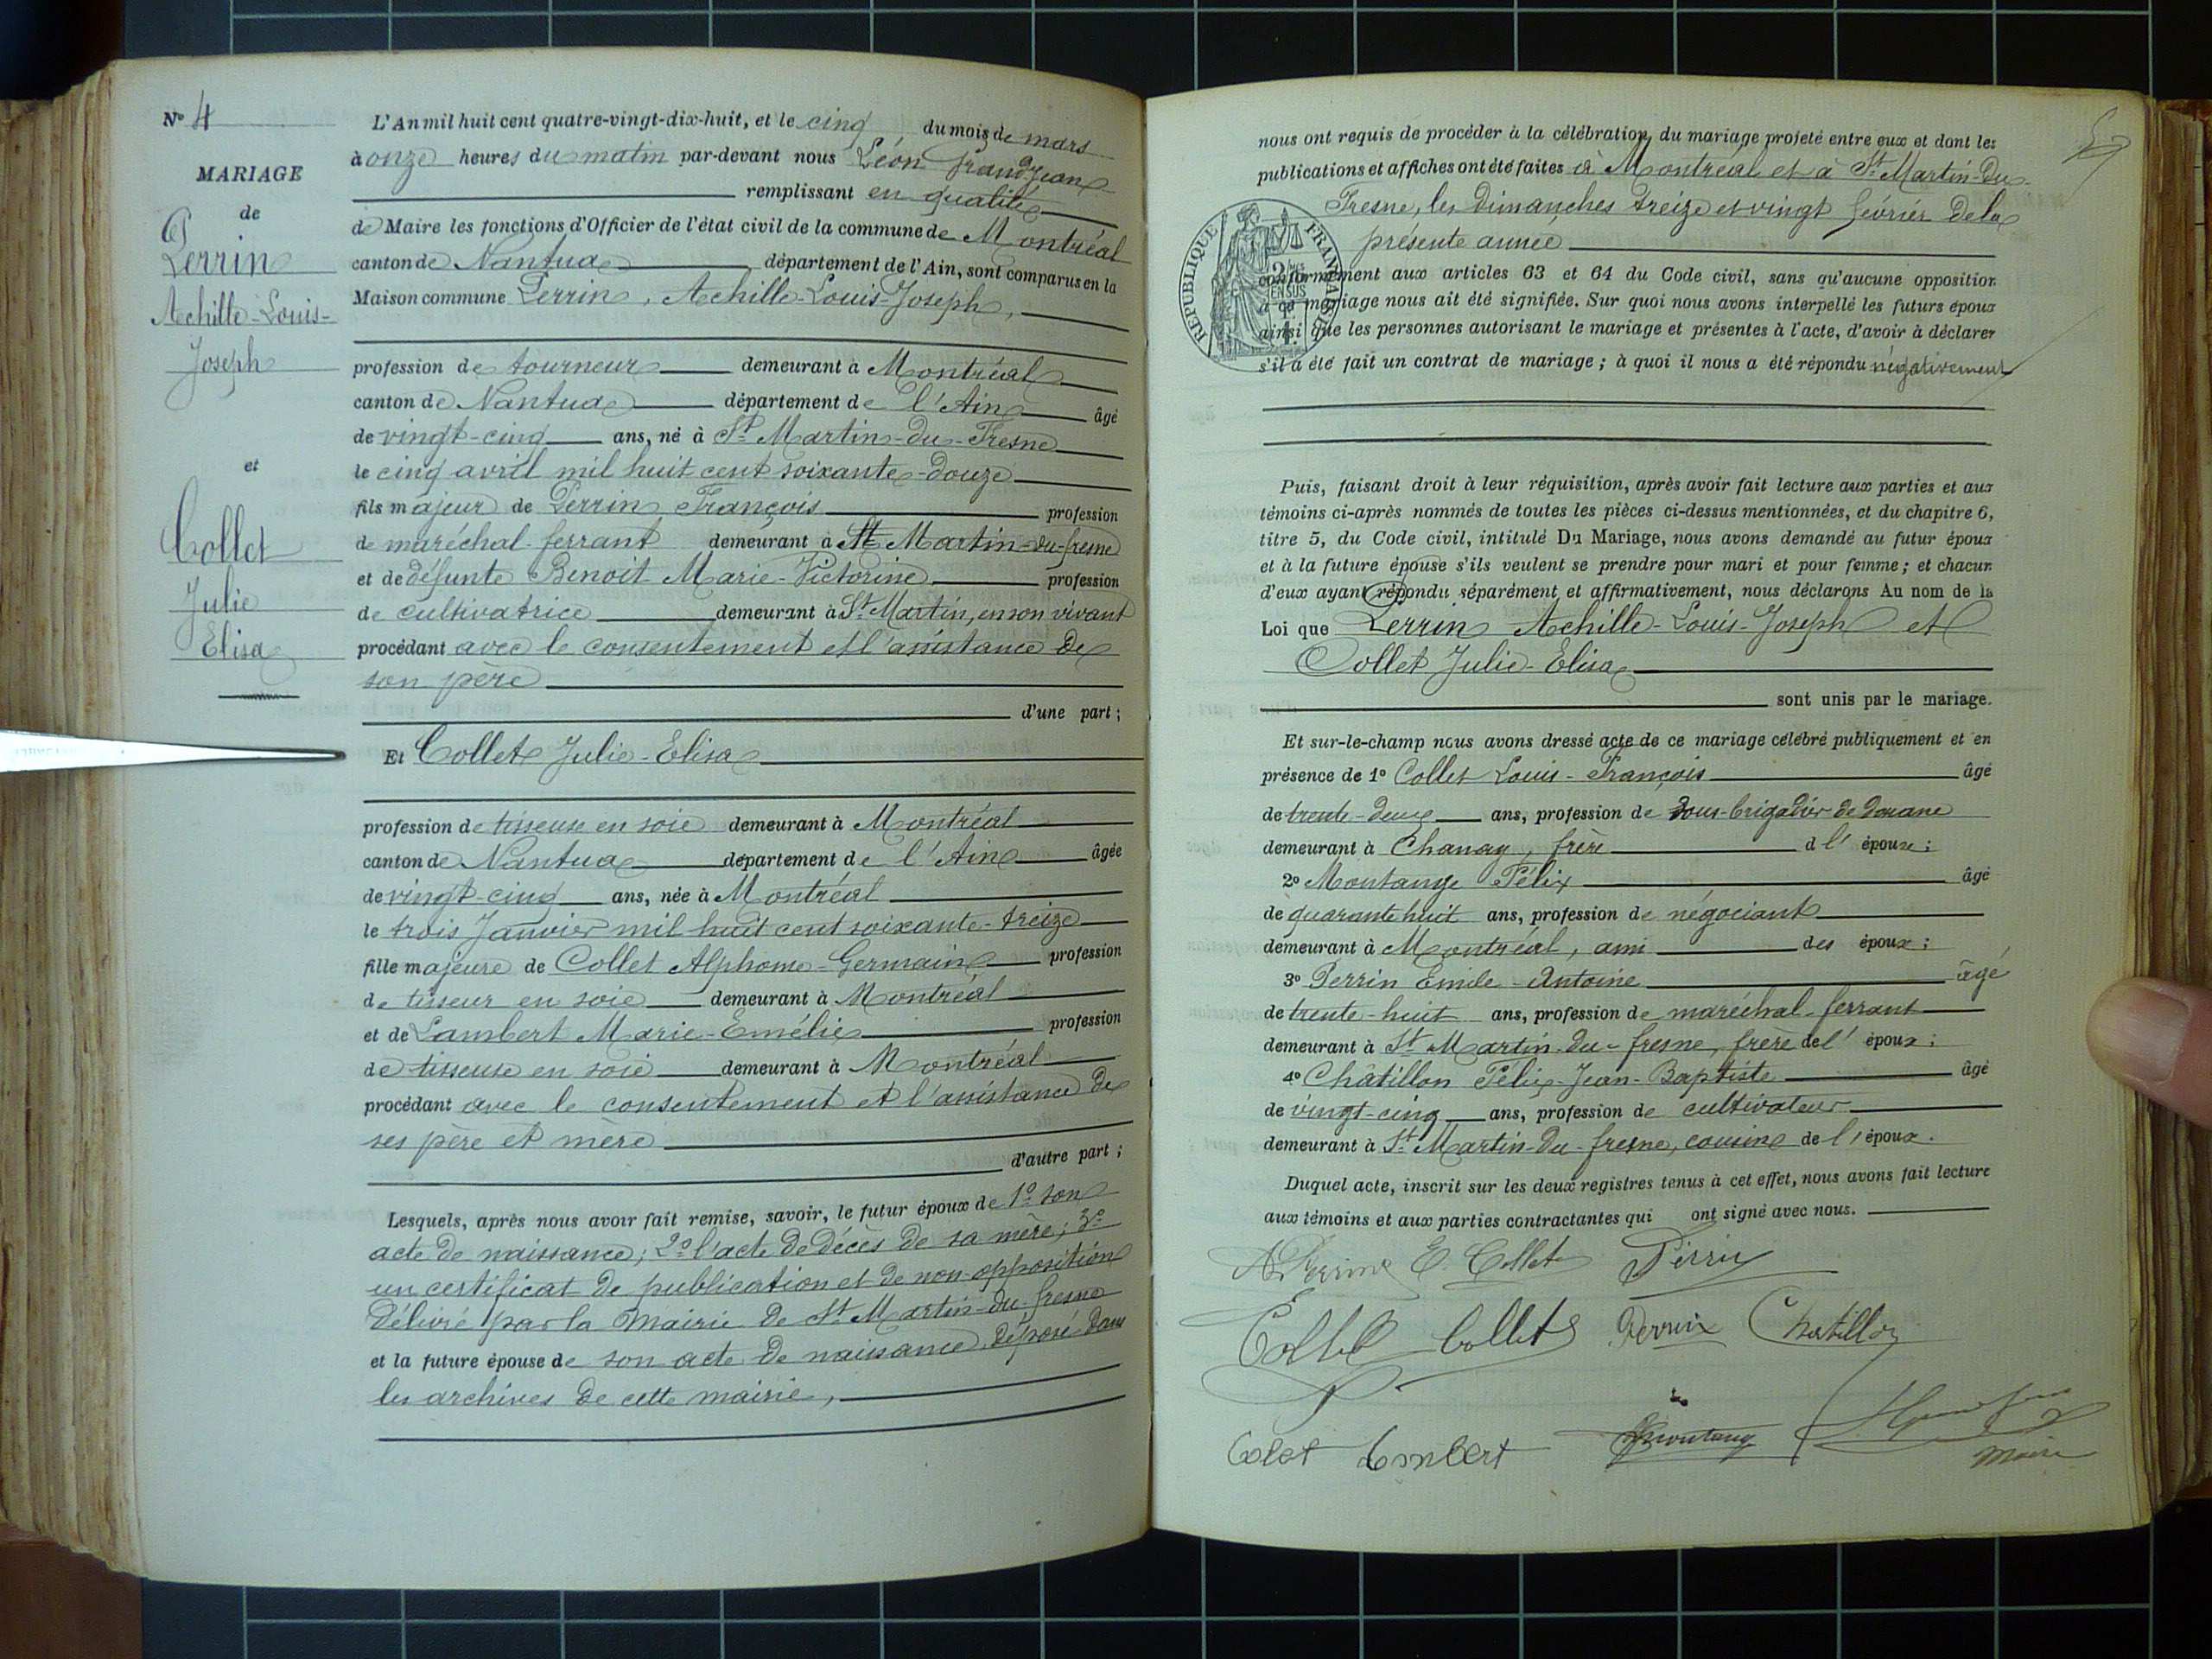 N° 4
MARIAGE
de
Perrin
Achille-Louis-
Joseph
et
Collet
Julie
Elisa
L'An mil huit cent quatre-vingt-dix-huit, et le cinq du mois de mars
à onze heures du matin par-devant nous Léon Grandjean
remplissant en qualité
de Maire les fonctions d'Officier de l'état civil de la commune de Montréal
canton de Nantua département de l'Ain, sont comparus en la
Maison commune Perrin, Achille-Louis-Joseph,
profession de tourneur demeurant à Montréal
canton de Nantua département de l'Ain âgé
de vingt-cinq ans, né à St Martin-du-Fresne
le cinq avril mil huit cent soixante-douze
fils majeur de Perrin François profession
de maréchal-ferrant demeurant à St Martin-du-fresne
et de défunte Benoit Marie-Victorine profession
de cultivatrice demeurant à St Martin, en son vivant
procédant avec le consentement et l'assistance de
son père
d'une part;
Et Collet Julie-Elisa
profession de tisseuse en soie demeurant à Montréal
canton de Nantua département de l'Ain âgée
de vingt-cinq ans, née à Montréal
le trois Janvier mil huit cent soixante-treize
fille majeure de Collet Alphonse-Germain profession
de tisseur en soie demeurant à Montréal
et de Lambert Marie-Emélie profession
de tisseuse en soie demeurant à Montréal
procédant avec le consentement et l'assistance de
ses père et mère
d'autre part;
Lesquels, après nous avoir fait remise, savoir, le futur époux de 1° son
acte de naissance; 2° l'acte de décès de sa mère; 3°
un certificat de publication et de non-opposition
délivré par la Mairie de St Martin-du-fresne
et la future épouse de son acte de naissance déposé dans
les archives de cette mairie,
nous ont requis de procéder à la célébration du mariage projeté entre eux et dont les
publications et affiches ont été faites à Montréal et à St Martin-du-
Fresne, les Dimanches treize et vingt février de la
présente année
RÉPUBLIQUE FRANÇAISE
conformément aux articles 63 et 64 du Code civil, sans qu'aucune opposition
à ce mariage nous ait été signifiée. Sur quoi nous avons interpellé les futurs époux
ainsi que les personnes autorisant le mariage et présentes à l'acte, d'avoir à déclarer
s'il a été fait un contrat de mariage; à quoi il nous a été répondu négativement
Puis, faisant droit à leur réquisition, après avoir fait lecture aux parties et aux
témoins ci-après nommés de toutes les pièces ci-dessus mentionnées, et du chapitre 6,
titre 5, du Code civil, intitulé Du Mariage, nous avons demandé au futur époux
et à la future épouse s'ils veulent se prendre pour mari et pour femme; et chacun
d'eux ayant répondu séparément et affirmativement, nous déclarons Au nom de la
Loi que Perrin Achille-Louis-Joseph et
Collet Julie-Elisa
sont unis par le mariage.
Et sur-le-champ nous avons dressé acte de ce mariage célébré publiquement et en
présence de 1° Collet Louis-François âgé
de trente-deux ans, profession de sous-brigadier de douane
demeurant à Chanay, frère d l' épouse;
2° Montange Félix âgé
de quarante huit ans, profession de négociant
demeurant à Montréal, ami des époux;
3° Perrin Emile-Antoine âgé
de trente-huit ans, profession de maréchal-ferrant
demeurant à St Martin-du-fresne, frère de l' époux;
4° Châtillon Félix-Jean-Baptiste âgé
de vingt-cinq ans, profession de cultivateur
demeurant à St Martin-du-fresne, cousin de l' époux.
Duquel acte, inscrit sur les deux registres tenus à cet effet, nous avons fait lecture
aux témoins et aux parties contractantes qui ont signé avec nous.
A Perrin E. Collet Perrin
Collet Collet Perrin Chatillon
Colet Lambert Montange
Maire